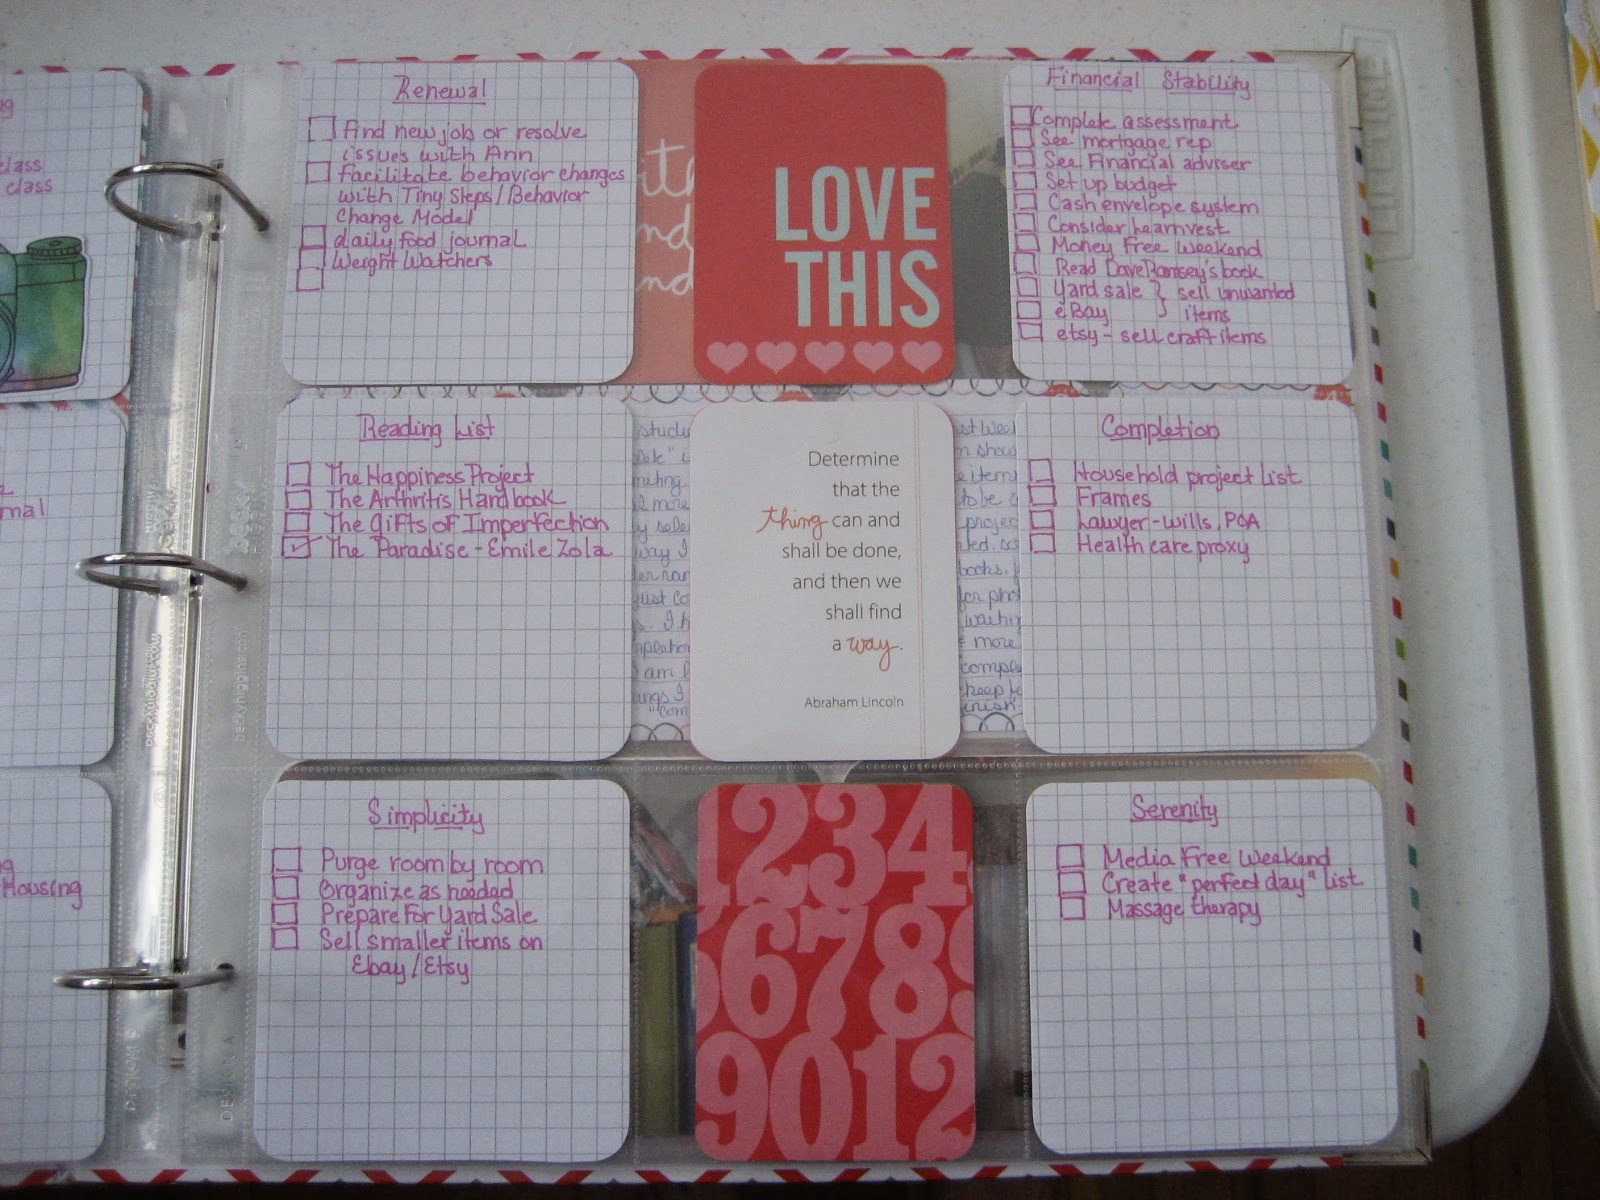 class
class
nal
Housing
Renewal
find new job or resolve
issues with Ann
facilitate behavior changes
with Tiny Steps/Behavior
Change Model
daily food journal
Weight Watchers
LOVE
THIS
Financial Stability
Complete assessment
See mortgage rep
See Financial adviser
Set up budget
Cash envelope system
Consider hearnvest
Money Free Weekend
Read Dave Ramsey's book
Yard sale } sell unwanted
eBay } items
etsy - sell craft items
Reading List
The Happiness Project
The Arthritis Handbook
The Gifts of Imperfection
The Paradise - Emile Zola
Determine
that the
thing can and
shall be done,
and then we
shall find
a way.
Abraham Lincoln
Completion
Household project list
Frames
Lawyer - wills, POA
Health care proxy
Simplicity
Purge room by room
Organize as needed
Prepare for Yard Sale
Sell smaller items on
Ebay/Etsy
1234
678
9012
Serenity
Media Free Weekend
Create "perfect day" list
Massage therapy
beckyhiggins.com
LIFETIME